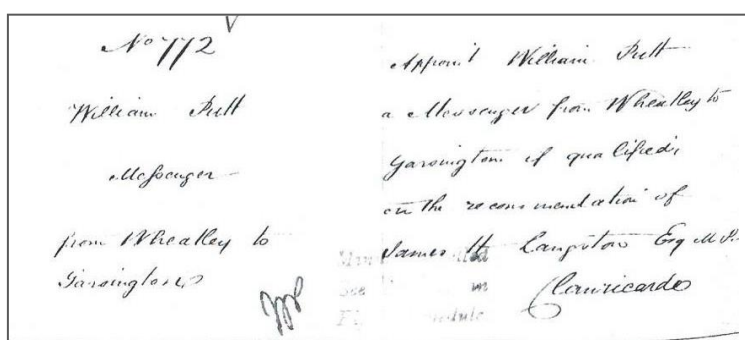 No 772
William Pitt
Messenger
from Wheatley to
Garsington
Appoint William Pitt
a Messenger from Wheatley to
Garsington if qualified,
on the recommendation of
James H Langston Esq M.P.
Clanricarde